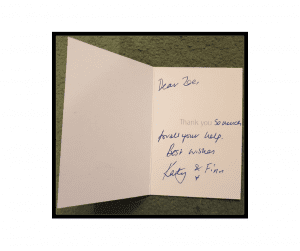 Dear Zoe,
Thank you so much
for all your help.
Best wishes
Kirsty & Finn
x